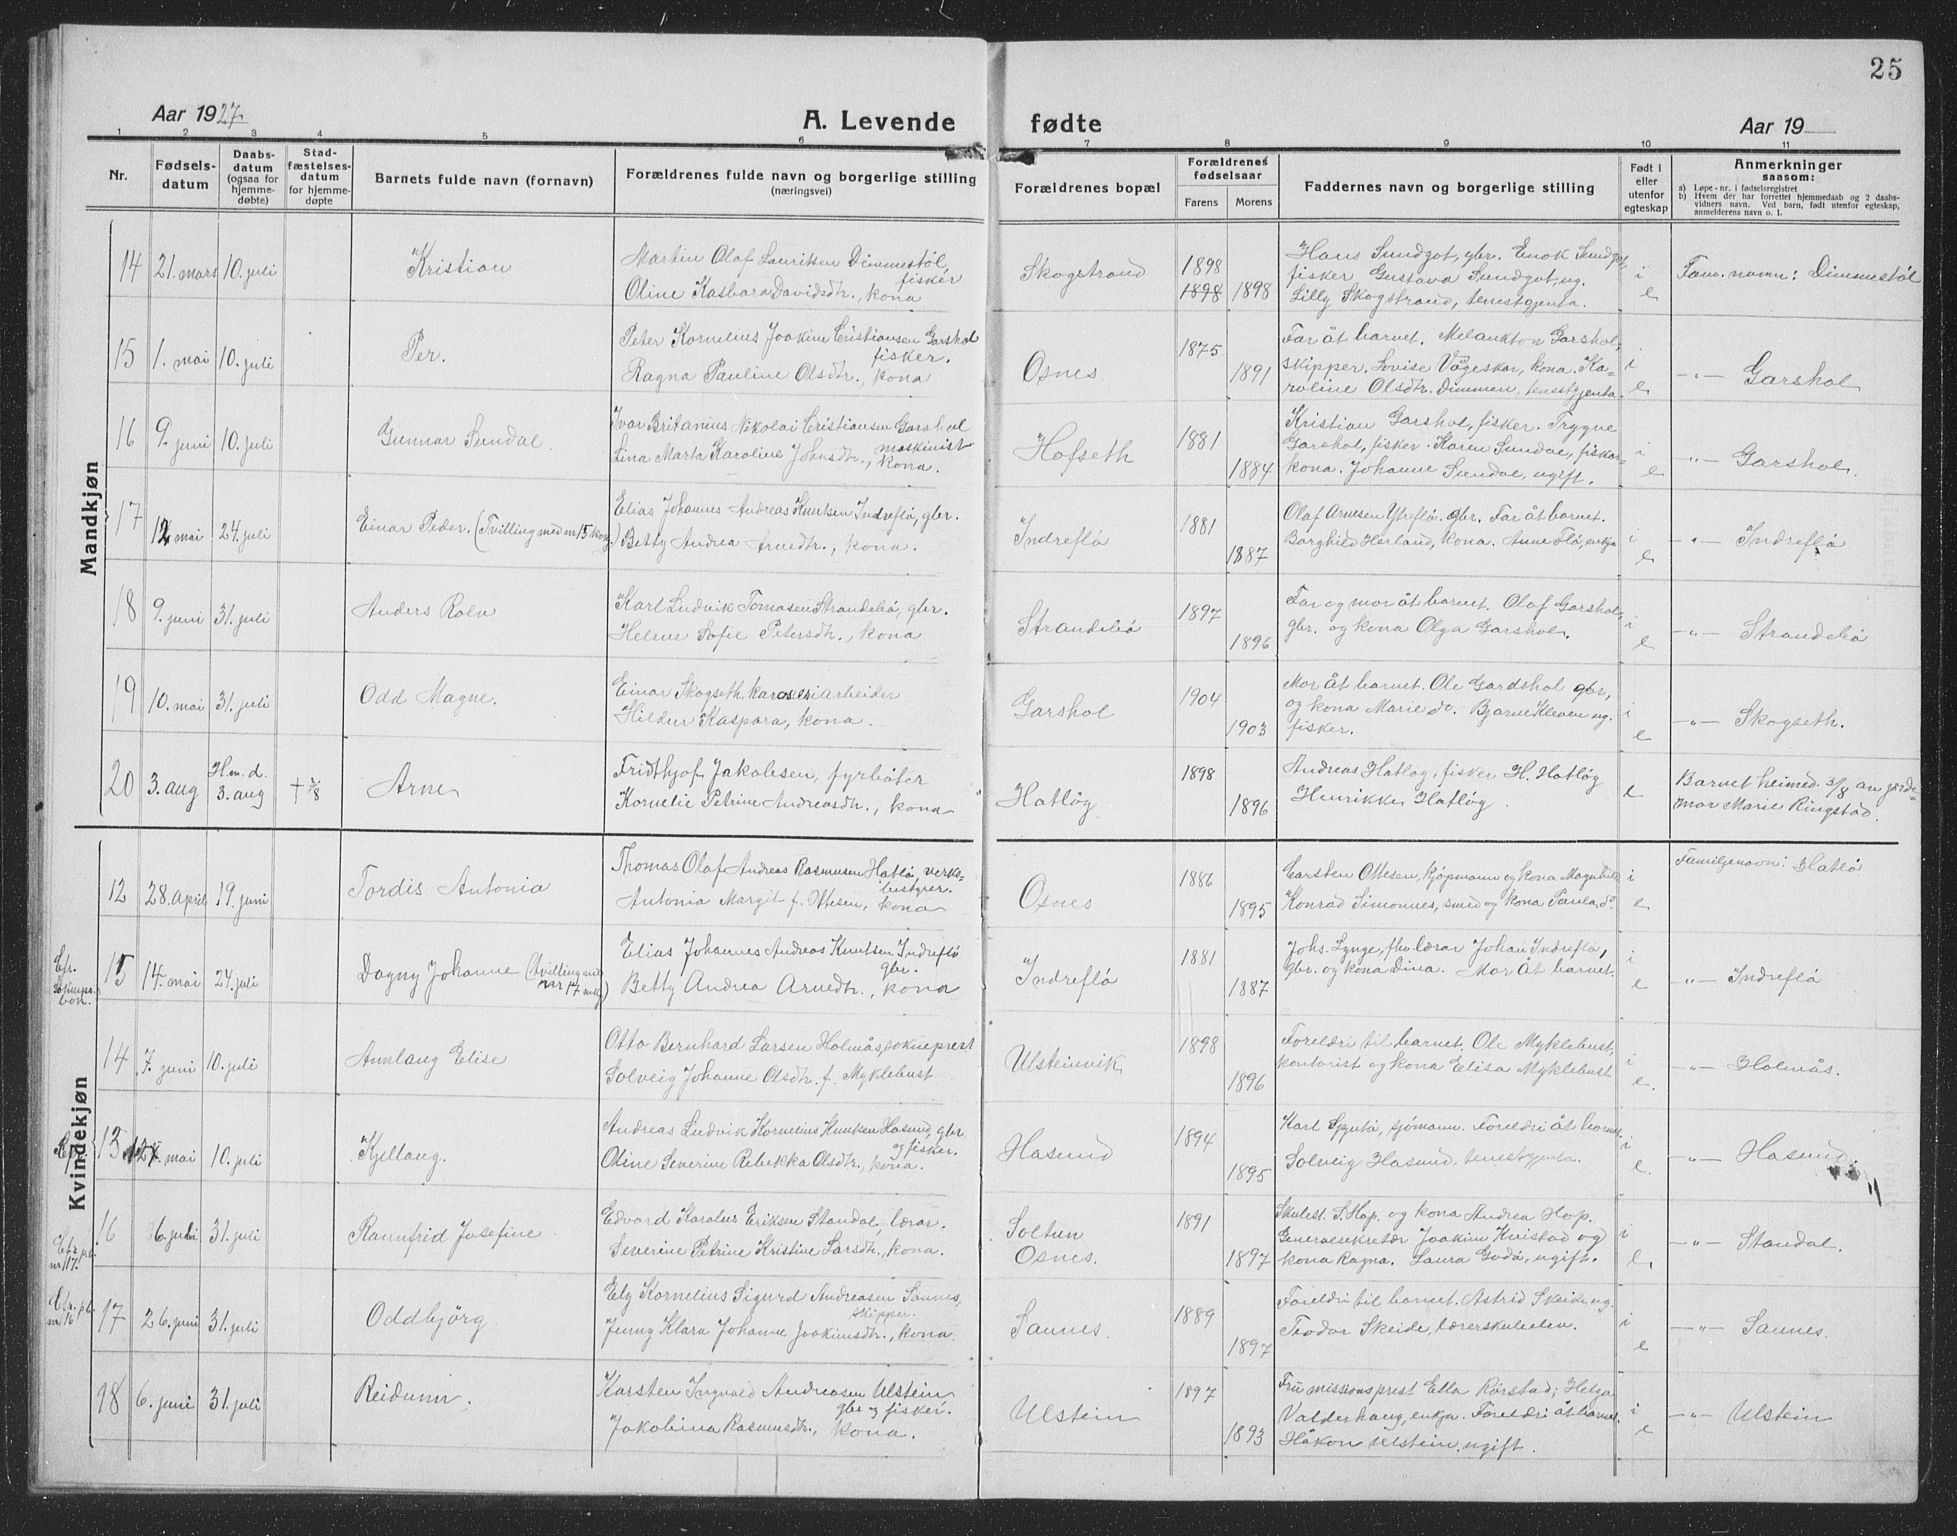 25
Aar 1927
A. Levende
fødte
Aar 19
1 2 3 4 5 6 7 8 9 10 11
Nr.
Fødsels-
datum
Daabs-
datum
(ogsaa for
hjemme-
døbte)
Stad-
fæstelses-
datum
for hjemme-
døpte
Barnets fulde navn (fornavn)
Forældrenes fulde navn og borgerlige stilling
(næringsvei)
Forældrenes bopæl
Forældrenes
fødselsaar
Farens Morens
Faddernes navn og borgerlige stilling
Født i
eller
utenfor
egteskap
Anmerkninger
saasom:
a) Løpe-nr. i fødselsregistret
b) Hvem der har forrettet hjemmedaab og 2 daabs-
vidners navn. Ved barn, født utenfor egteskap,
anmelderens navn o. l.
Mandkjøn
14 21. mars 10. juli Kristian
Martin Olaf Lauritsen Dimmestøl
fisker
Oline Kasbara Davidsdtr., kona
Skogstrand
1898
1898 1898
Hans Sundgot, gbr. Enok Sundgot,
fisker Gustava Sundgot, ug.
Lilly Skogstrand, tenestgjenta.
i
e
Fam. namn: Dimmestøl
15 1. mai 10. juli Per.
Peter Kornelius Joakim Cristiansen Garshol
fisker.
Ragna Pauline Olsdtr., kona
Osnes
1875
1891
Far åt barnet. Melankton Garshol,
skipper. Lovise Vågeskar, kona. Ka-
roline Olsdtr. Dimmen, tenestgjenta.
i
e
-"- Garshol
16 9. juni 10. juli Gunnar Sundal.
Ivar Britanius Nikolai Cristiansen Garshol
maskinist
Lina Marta Karoline Johnsdtr., kona.
Hofseth
1881
1884
Kristian Garshol, fisker. Trygve
Garshol, fisker. Karen Sundal, fiskar-
kona. Johanne Sundal, ugift.
i
e
-"- Garshol.
17 12 mai 24. juli Einar Peder. (Tvilling med nr 15 kvk)
Elias Johannes Andreas Knutsen Indreflø, gbr.
Betty Andrea Arnedtr., kona.
Indreflø
1881
1887
Olaf Arnesen Ytreflø. gbr. Far åt barnet.
Borghild Herland, kona. Anne Flø, enkja
i
e
-"- Indreflø
18 9. juni 31. juli Anders Rolv
Karl Ludvik Tomasen Strandebø, gbr.
Helene Sofie Petersdtr., kona
Strandebø
1897
1896
Far og mor åt barnet. Olaf Garshol,
gbr. og kona Olga Garshol.
i
e
-"- Strandebø
19 10. mai 31. juli Odd Magne.
Einar Skogseth, karosseriarbeider
Hildur Kaspara, kona.
Garshol
1904
1903
Mor åt barnet. Ole Gardshol gbr,
og kona Marie do. Bjarne Kleven ug.
fisker.
i
e
-"- Skogseth.
20 3. aug
H.m. d.
3. aug
† 3/8
Arne
Fridthjof Jakobsen, fyrbøter
Kornelie Petrine Andreasdtr., kona
Hatløy
1898
1896
Andreas Hatløy, fisker H. Hatløy
Henrikke Hatløy
e
Barnet heimed. 3/8 av jorde-
mor Marie Ringstad.
Kvindekjøn
12 28. april 19. juni Tordis Antonia
Thomas Olaf Andreas Rasmusen Hatlø, verks-
bestyrer.
Antonia Margit f. Ottesen, kona
Osnes
1886
1895
Carsten Ottesen, kjøpmann og kona Magnhild
Konrad Simonnes, smed og kona Paula, do
i
e
Familjenavn: Hatlø
Cfr.
15 14. mai 24. juli Dagny Johanne (Tvilling med
nr 17 mk)
Elias Johannes Andreas Knutsen Indreflø
gbr.
Betty Andrea Arnedtr., kona
Indreflø
1881
1887
Johs. Lynge, fhv. lærar Johan Indreflø,
gbr. og kona Dina. Mor åt barnet.
i
e
-"- Indreflø
14 7. juni 10. juli Annlaug Elise
Otto Bernhard Larsen Holmås, sokneprest
Solveig Johanne Olsdtr. f. Myklebust
Ulsteinvik
1898
1896
Foreldri til barnet. Ole Myklebust,
kontorist og kona Elisa Myklebust
i
e.
-"- Holmås.
13 mai 10. juli Kjellaug.
Andreas Ludvik Kornelius Knutsen Hasund, gbr
og fisker.
Oline Severine Rebekka Olsdtr., kona.
Hasund
1894
1895
sjømann. Foreldri åt barnet.
Solveig Hasund, tenestgjenta.
i
e.
-"- Hasund
16 6. juli 31. juli Rannfrid Josefine
Edvard Karolus Eriksen Standal, lærar.
Severine Petrine Kristine Larsdtr., kona.
Soltun
Osnes.
1891
1897
Skulest. S. Hop. og kona Andrea Hop.
Generalsekretær Joakim Kvistad og
kona Ragna. Laura Godø, ugift.
i
e.
-"- Standal.
Cfr. pl.
nr 17.
Cfr. pl.
nr 16
17 26. juni 31. juli Oddbjörg
Ely Kornelius Sigurd Andreasen Saunes,
skipper.
Jenny Klara Johanne Joakimsdtr., kona.
Saunes.
1889
1897
Foreldri til barnet. Astrid Skeide, ug.
Teodor Skeide, lærerskuleelev.
i
e
-"- Saunes.
18 6. juni 31. juli Reidunn.
Karsten Ingvald Andreasen Ulstein
gbr og fisker.
Jakobina Rasmusdtr., kona.
Ulstein
1897
1893
Fru missionsprest Etta Rørstad; Helga
Valderhaug, enkja. Foreldri åt barnet.
Håkon Ulstein, ugift.
i
e
-"- Ulstein